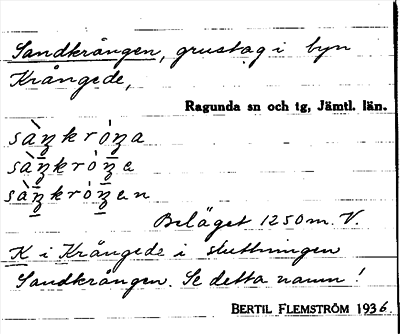 Sandkrången, grustag i byn
Krångede,
Ragunda sn och tg, Jämtl. län.
Beläget 1250 m. V.
K i Krångede i sluttningen
Sandkrången. Se detta namn!
BERTIL FLEMSTRÖM 1936.